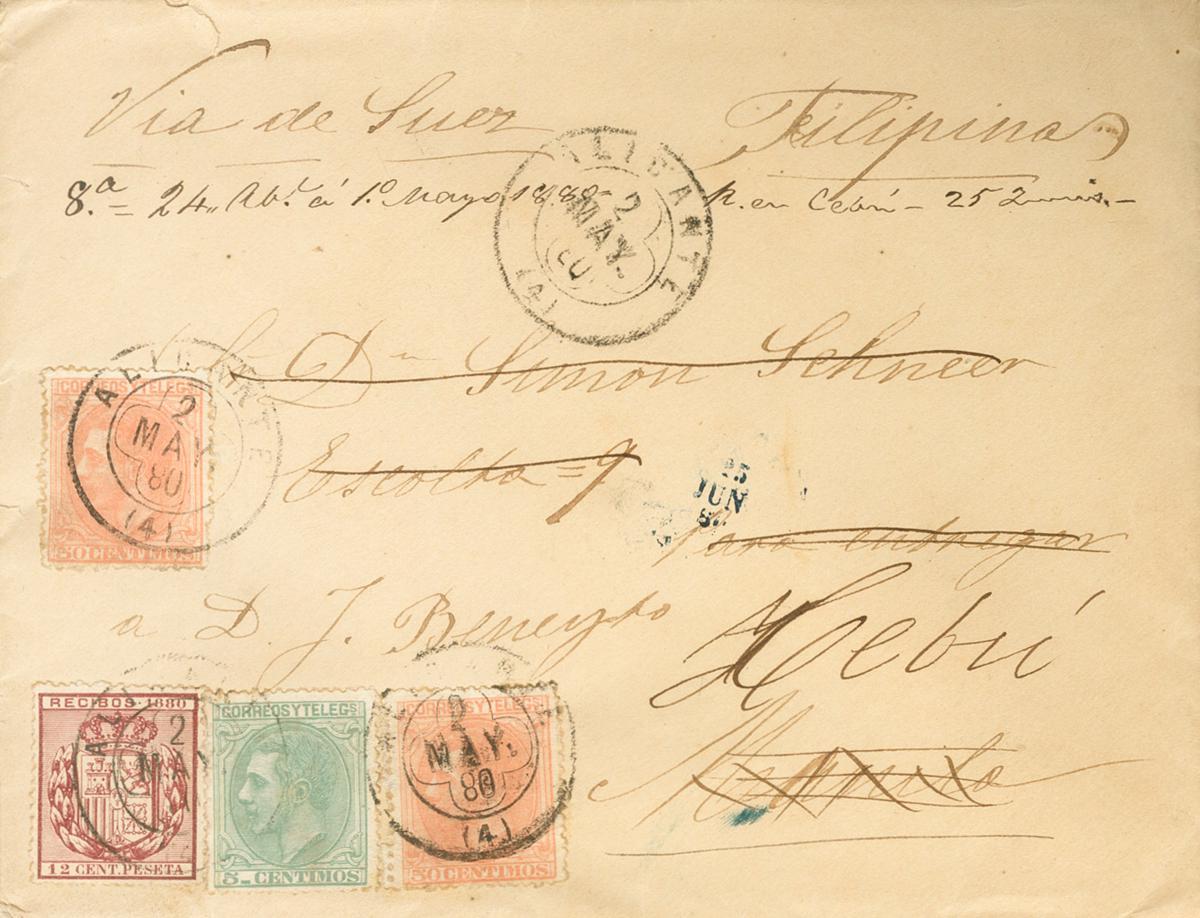 Via de Suez Filipinas
8.ª = 24,, Ab.l á 1º Mayo 1880 R. en Cebú - 25 Junio. -
ALICANTE
2
MAY.
80
(4)
Sr. Dn Simon Schneer
Escolta = 9
25
JUN
Para entregar
a D. J. Beneyto
Cebú
Manila
CORREOS Y TELEGS
50 CENTIMOS
ALICANTE
2
MAY
80
(4)
RECIBOS·1880
12 CENT. PESETA
2
MAY
CORREOS Y TELEGS
5_ CENTIMOS
CORREOS Y TELEGS
50 CENTIMOS
2
MAY.
80
(4)